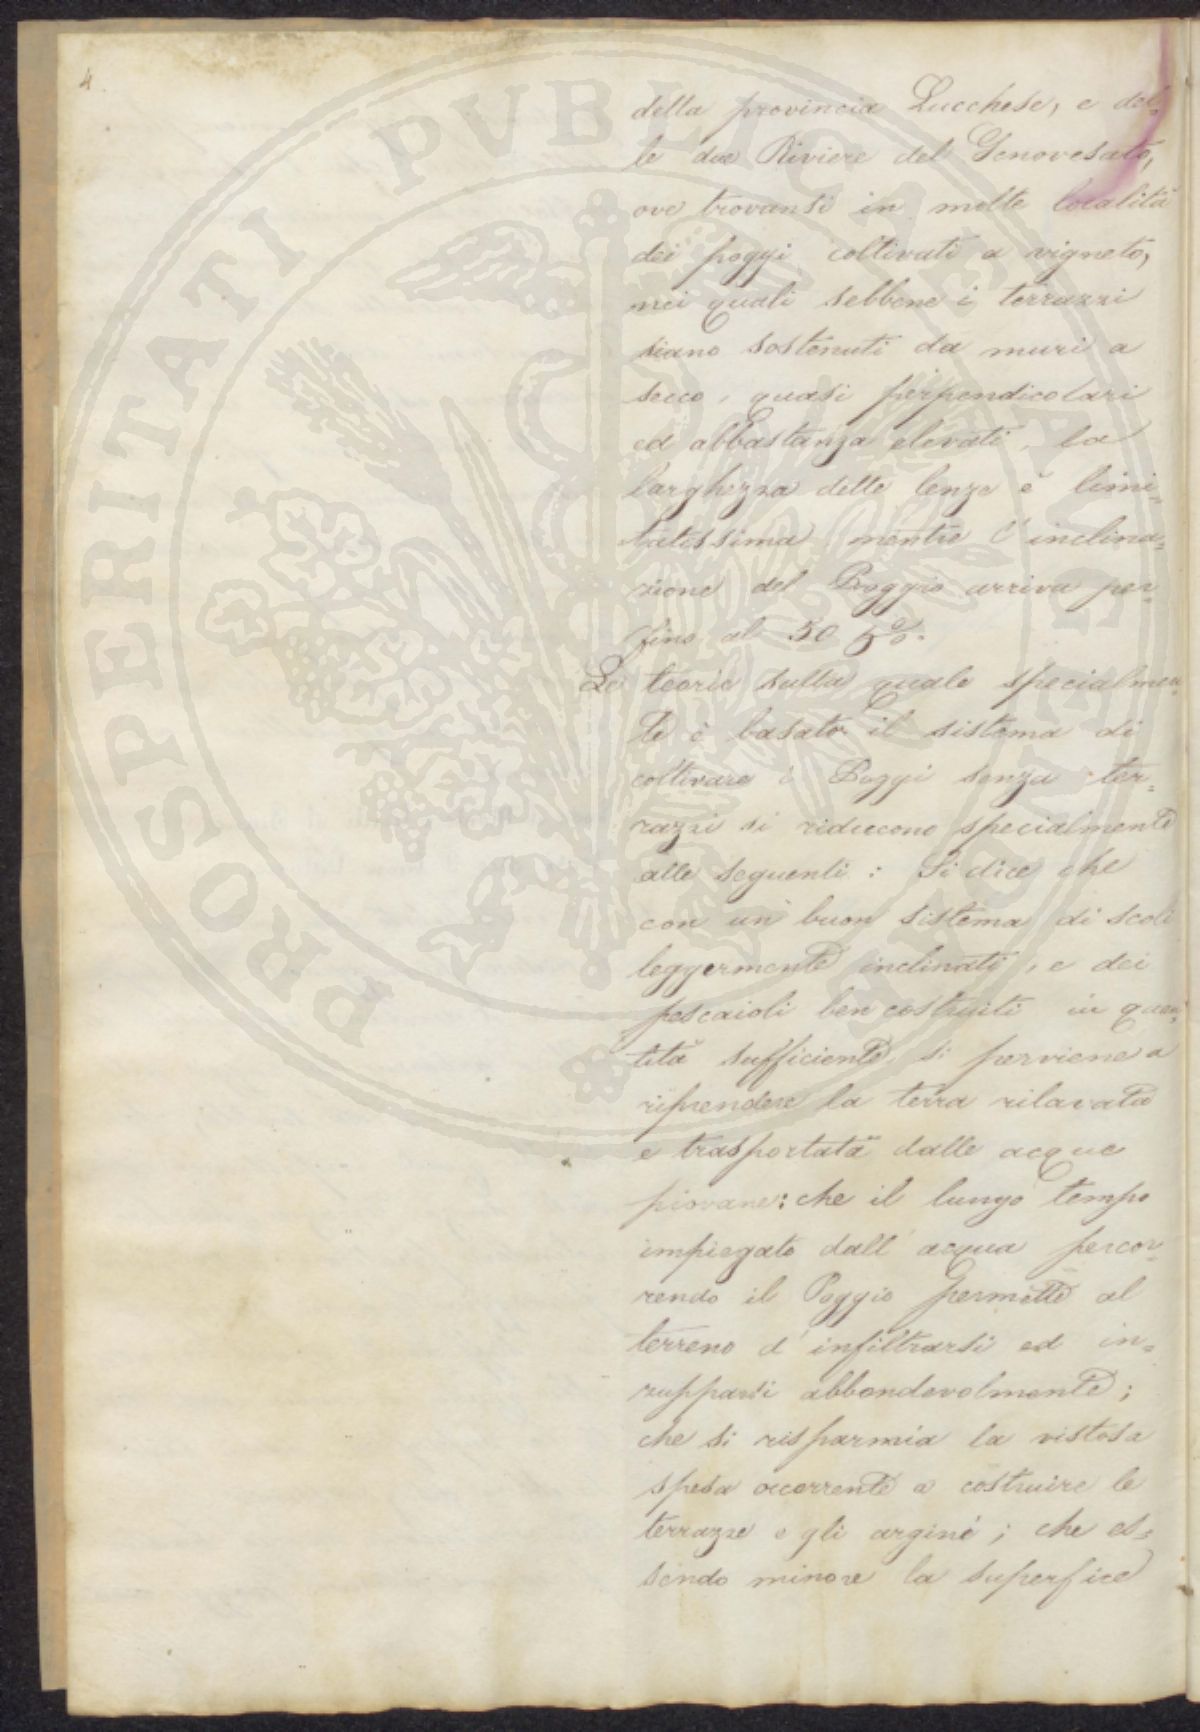 4
della provincia Lucchese, e del=
le due Riviere del Genovesato,
ove trovansi in molte località
dei poggi coltivati a vigneto,
nei quali sebbene i terrazzi
siano sostenuti da muri a
secco, quasi perpendicolari
ed abbastanza elevati, la
larghezza delle lenze è limi=
tatissima mentre l'inclina=
zione del Poggio arriva per=
fino al 50 %.
Le teorie sulla quale specialmen=
te è basato il sistema di
coltivare i Poggi senza ter=
razzi si riducono specialmente
alle seguenti: Si dice che
con un buon sistema di scoli
leggermente inclinati, e dei
pescaioli ben costruiti in quan=
tità sufficiente si perviene a
riprendere la terra rilavata
e trasportata dalle acque
piovane: che il lungo tempo
impiegato dall'acqua percor=
rendo il Poggio permette al
terreno d'infiltrarsi ed in=
zupparsi abbondevolmente;
che si risparmia la vistosa
spesa occorrente a costruire le
terrazze e gli argini; che es=
sendo minore la superfice
PROSPERITATI PVBLICAE AVGENDAE